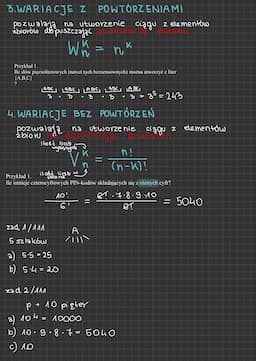 3. WARIACJE Z POWTÓRZENIAMI
pozwalają na utworzenie ciągu z elementów
zbiorów dopuszczając
W k n = n^k
Przykład 1.
Ile słów pięcioliterowych (nawet tych bezsensownych) można utworzyć z liter
{A,B,C}
?
ABC ABC ABC ABC ABC
3 · 3 · 3 · 3 · 3 = 3^5 = 243
4. WARIACJE BEZ POWTÓRZEŃ
pozwalają na utworzenie ciągu z elementów
zbioru
ilość
V k n = n! / (n-k)!
ilość
Przykład 1.
Ile istnieje czterocyfrowych PIN-kodów składających się z różnych cyfr?
10! / 6! = 6! · 7 · 8 · 9 · 10 / 6! = 5040
zad. 1/111
5 szlaków
A
a) 5·5 = 25
b) 5·4 = 20
zad. 2/111
p + 10 pięter
a) 10^4 = 10000
b) 10 · 9 · 8 · 7 = 5040
c) 10